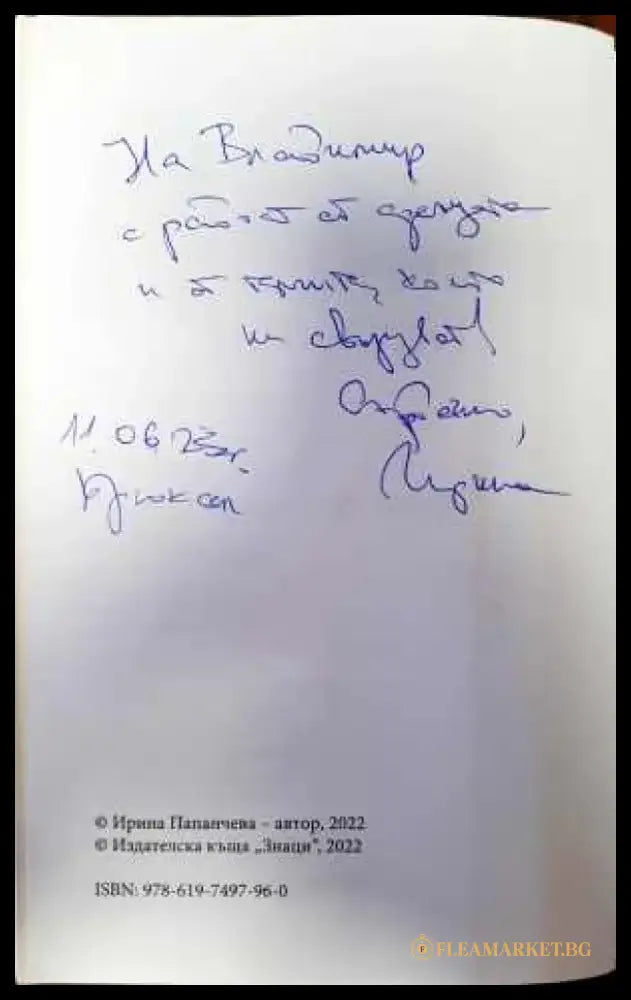 На Владимир
с радост от срещата
и от нишките, които
ни свързват!
Сърдечно,
Ирина
11.06.23г.
Брюксел
© Ирина Папанчева – автор, 2022
© Издателска къща „Знаци”, 2022
ISBN: 978-619-7497-96-0
FLEAMARKET.BG